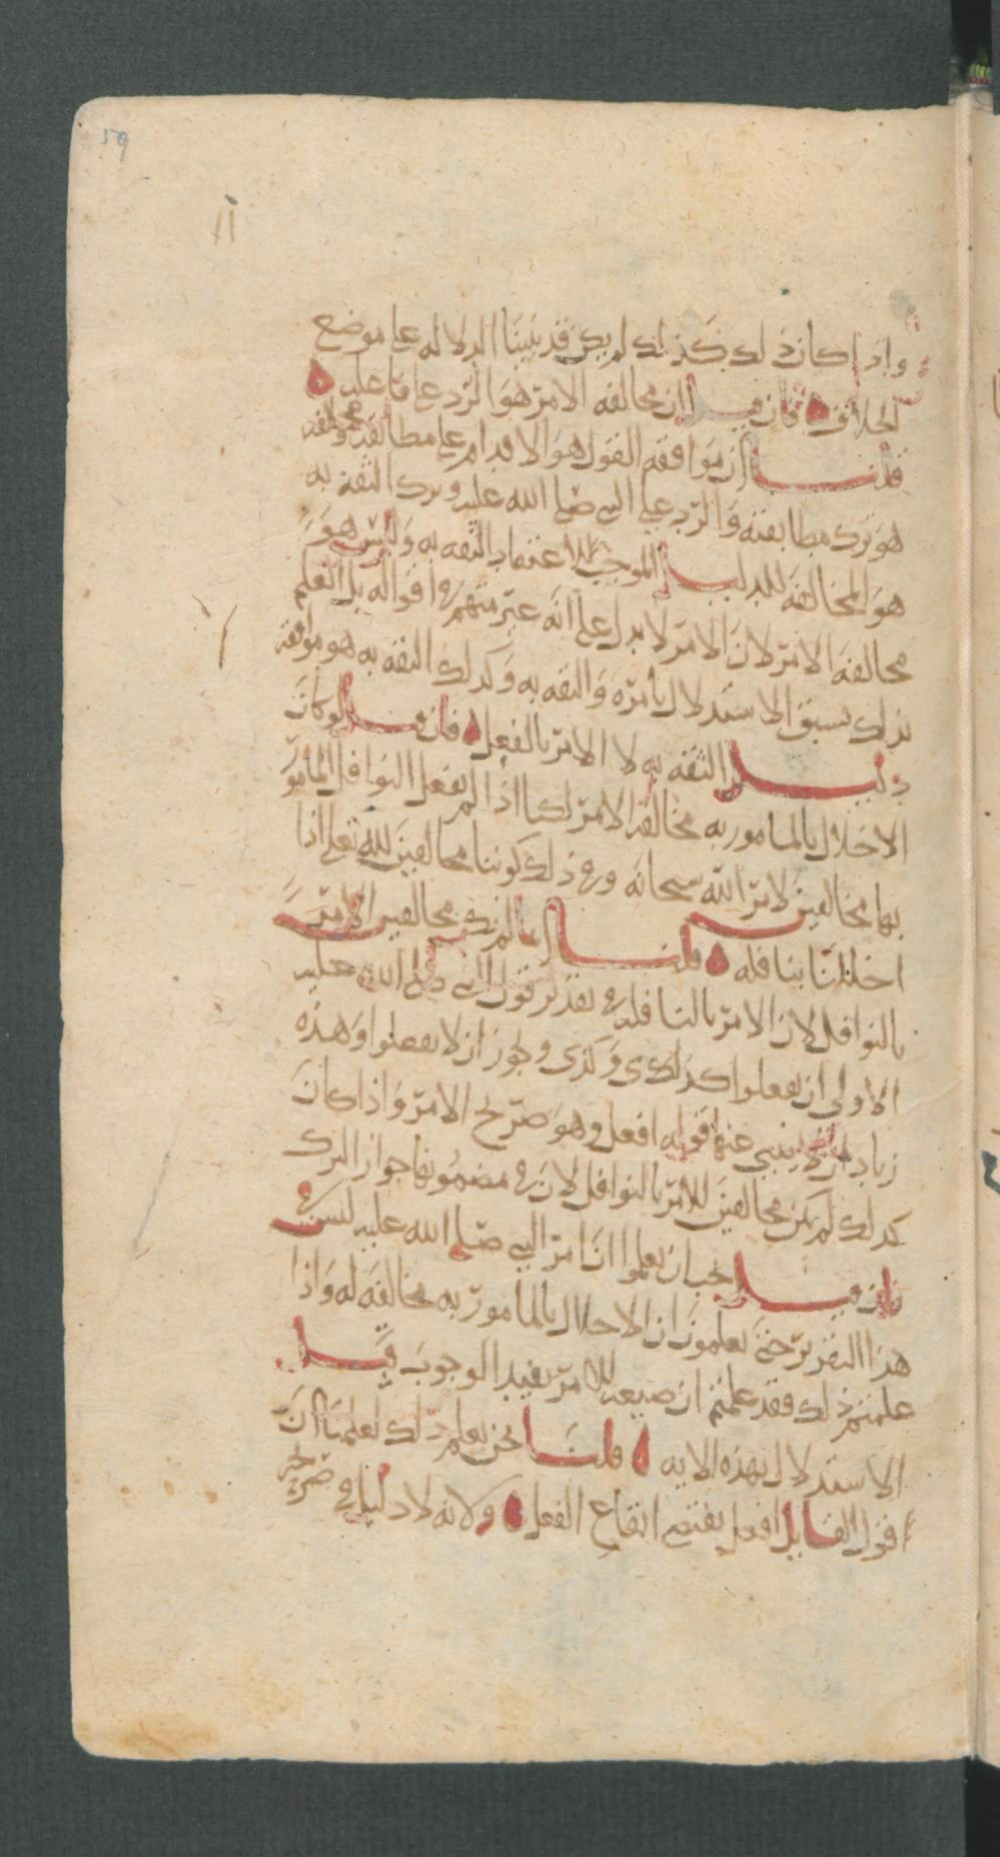 59
١١
واذا كان ذلك كذلك لم يكن قد بينا الدلاله على موضع
الخلاف فان قيل ان مخالفه الامر هو الرد على فاعليه
قلنا ان موافقه القول هو الاقدام على مطابقته ومخالفته
هو ترك مطابقته والرد على النبي صلى الله عليه وترك الثقه به
هو المخالفه للدليل الموجب للاعتقاد الثقه به وليس هو
مخالفه الامر لان الامر لا يدل على انه غير متهم في اقواله بل العلم
بذلك يسبق الاستدلال بامره والثقه به وكذلك الثقه به هو موافقه
دليل الثقه به لا الامر بالفعل فان قيل لو كان
الاخلال بالمامور به مخالفه الامر لكنا اذا لم نفعل النوافل المامور
بها مخالفين لامر الله سبحانه وفي ذلك كوننا مخالفين لله تعلى اذا
اخللنا بنافله قلنا انما لم نكن مخالفين الامر
بالنوافل لان الامر بالنافله في تقدير قول النبي صلى الله عليه
الاولى ان تفعلوا كذلك وكذى ويجوز ان لا تفعلوا وهذه
زياده لا ينبي عنها قوله افعل وهو صريح الامر واذا كان
كذلك لم نكن مخالفين للامر بالنوافل لان في مضمونها جواز الترك
فان قيل يجب ان تعلموا ان امر النبي صلى الله عليه ليس في
هذا التقدير حتى تعلمون ان الاخلال بالمامور به مخالفه له واذا
علمتم ذلك فقد علمتم ان صيغه الامر يفيد الوجوب قبل
الاستدلال بهذه الايه قلنا نحن نعلم ذلك لعلمنا ان
قول القايل افعل يقتضي ايقاع الفعل ولانه لا دليل في صريح